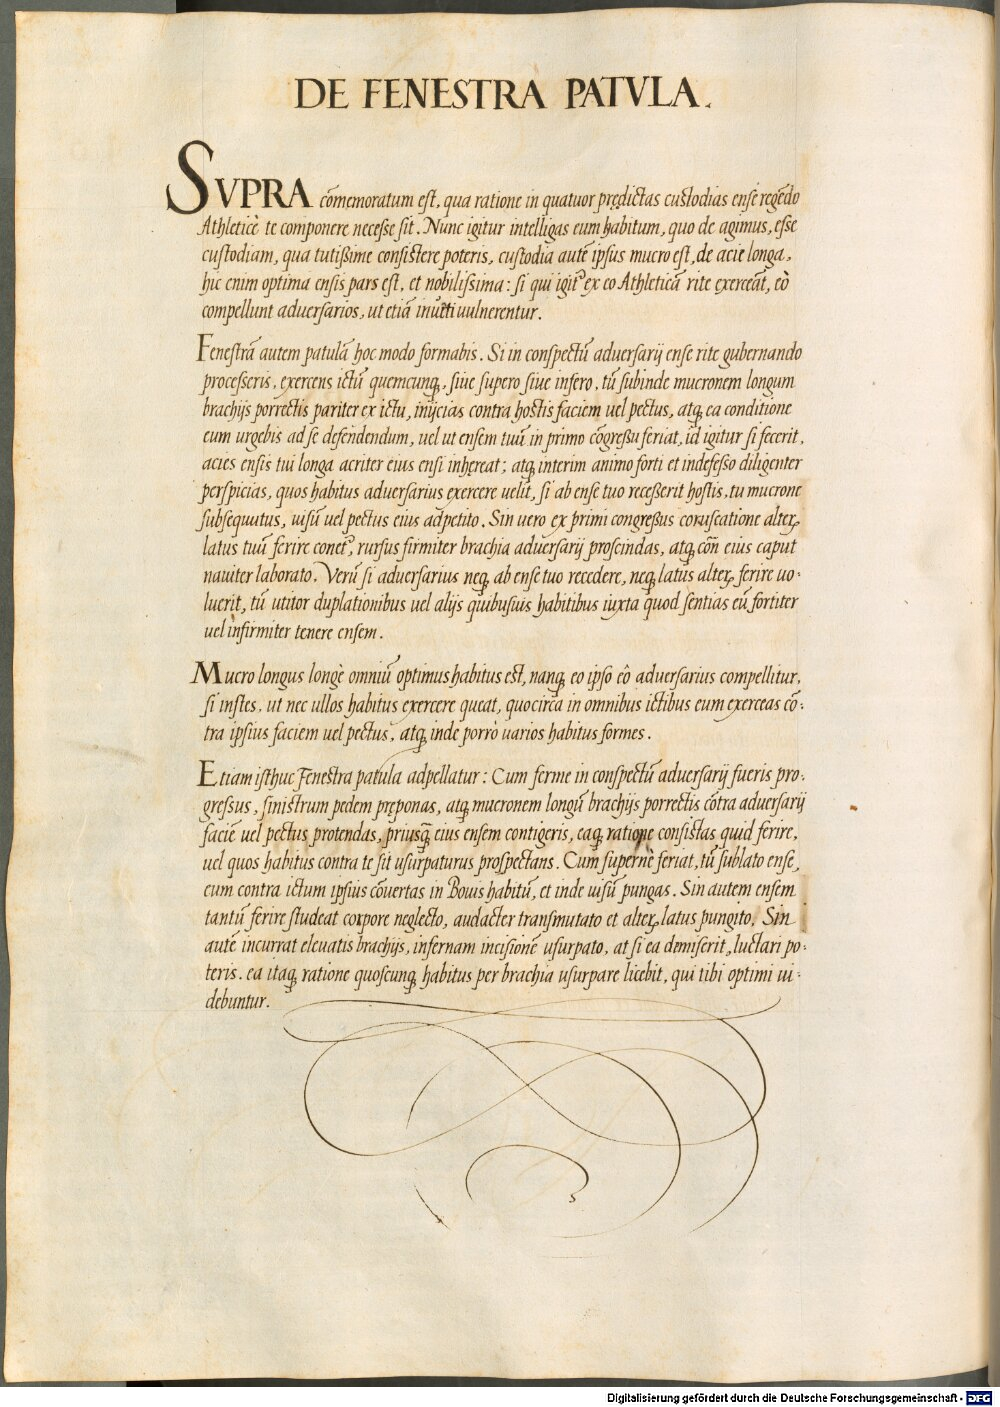 DE FENESTRA PATVLA.
SVPRA cōmemoratum est, qua ratione in quatuor prędictas custodias ense regēdo
Athleticè te componere necesse sit. Nunc igitur intelligas eum habitum, quo de agimus, esse
custodiam, qua tutißime consistere poteris, custodia autē ipsus mucro est, de acie longa,
hic enim optima ensis pars est, et nobilissima: si qui igit᷑ ex eo Athleticā rite exerceāt, eò
compellunt aduersarios, ut etiā inuiti uulnerentur.
Fenestrā autem patulā hoc modo formabis. Si in conspectū aduersarij ense rite gubernando
processeris, exercens ictū quemcunq, siue supero siue infero, tū subinde mucronem longum
brachijs porrectis pariter ex ictu, inijcias contra hostis faciem uel pectus, atq ea conditione
eum urgebis ad se defendendum, uel ut ensem tuū in primo cōgreßu feriat, id igitur si fecerit,
acies ensis tui longa acriter eius ensi inhęreat; atq interim animo forti et indefesso diligenter
perspicias, quos habitus aduersarius exercere uelit, si ab ense tuo receßerit hostis, tu mucrone
subsequutus, uisū uel pectus eius adpetito. Sin uero ex primi congreßus coruscatione alterꝝ
latus tuū ferire conet᷑, rursus firmiter brachia aduersarij proscindas, atq cōn eius caput
nauiter laborato. Verū si aduersarius neq ab ense tuo recedere, neq latus alterꝝ ferire uo:
luerit, tū utitor duplationibus uel alijs quibusuis habitibus iuxta quod sentias eū fortiter
uel infirmiter tenere ensem.
Mucro longus longè omniū optimus habitus est, nanq eo ipso eô aduersarius compellitur,
si instes, ut nec ullos habitus exercere queat, quocirca in omnibus ictibus eum exerceas cō:
tra ipsius faciem uel pectus, atq inde porrò uarios habitus formes.
Etiam isthuc Fenestra patula adpellatur: Cum ferme in conspectū aduersarij fueris pro:
gressus, sinistrum pedem pręponas, atq mucronem longū brachijs porrectis cōtra aduersarij
faciē uel pectus protendas, priusq̄ eius ensem contigeris, eaq ratione consistas quid ferire,
uel quos habitus contra te sit usurpaturus prospectans. Cum supernè feriat, tū sublato ense,
eum contra ictum ipsius cōuertas in Bouis habitū, et inde uisū pungas. Sin autem ensem
tantū ferire studeat corpore neglecto, audacter transmutato et alterꝝ latus pungito. Sin
autē incurrat eleuatis brachijs, infernam incisionē usurpato, at si ea demiserit, luctari po:
teris. ea itaq ratione quoscunq habitus per brachia usurpare licebit, qui tibi optimi ui:
debuntur.
Digitalisierung gefördert durch die Deutsche Forschungsgemeinschaft - DFG